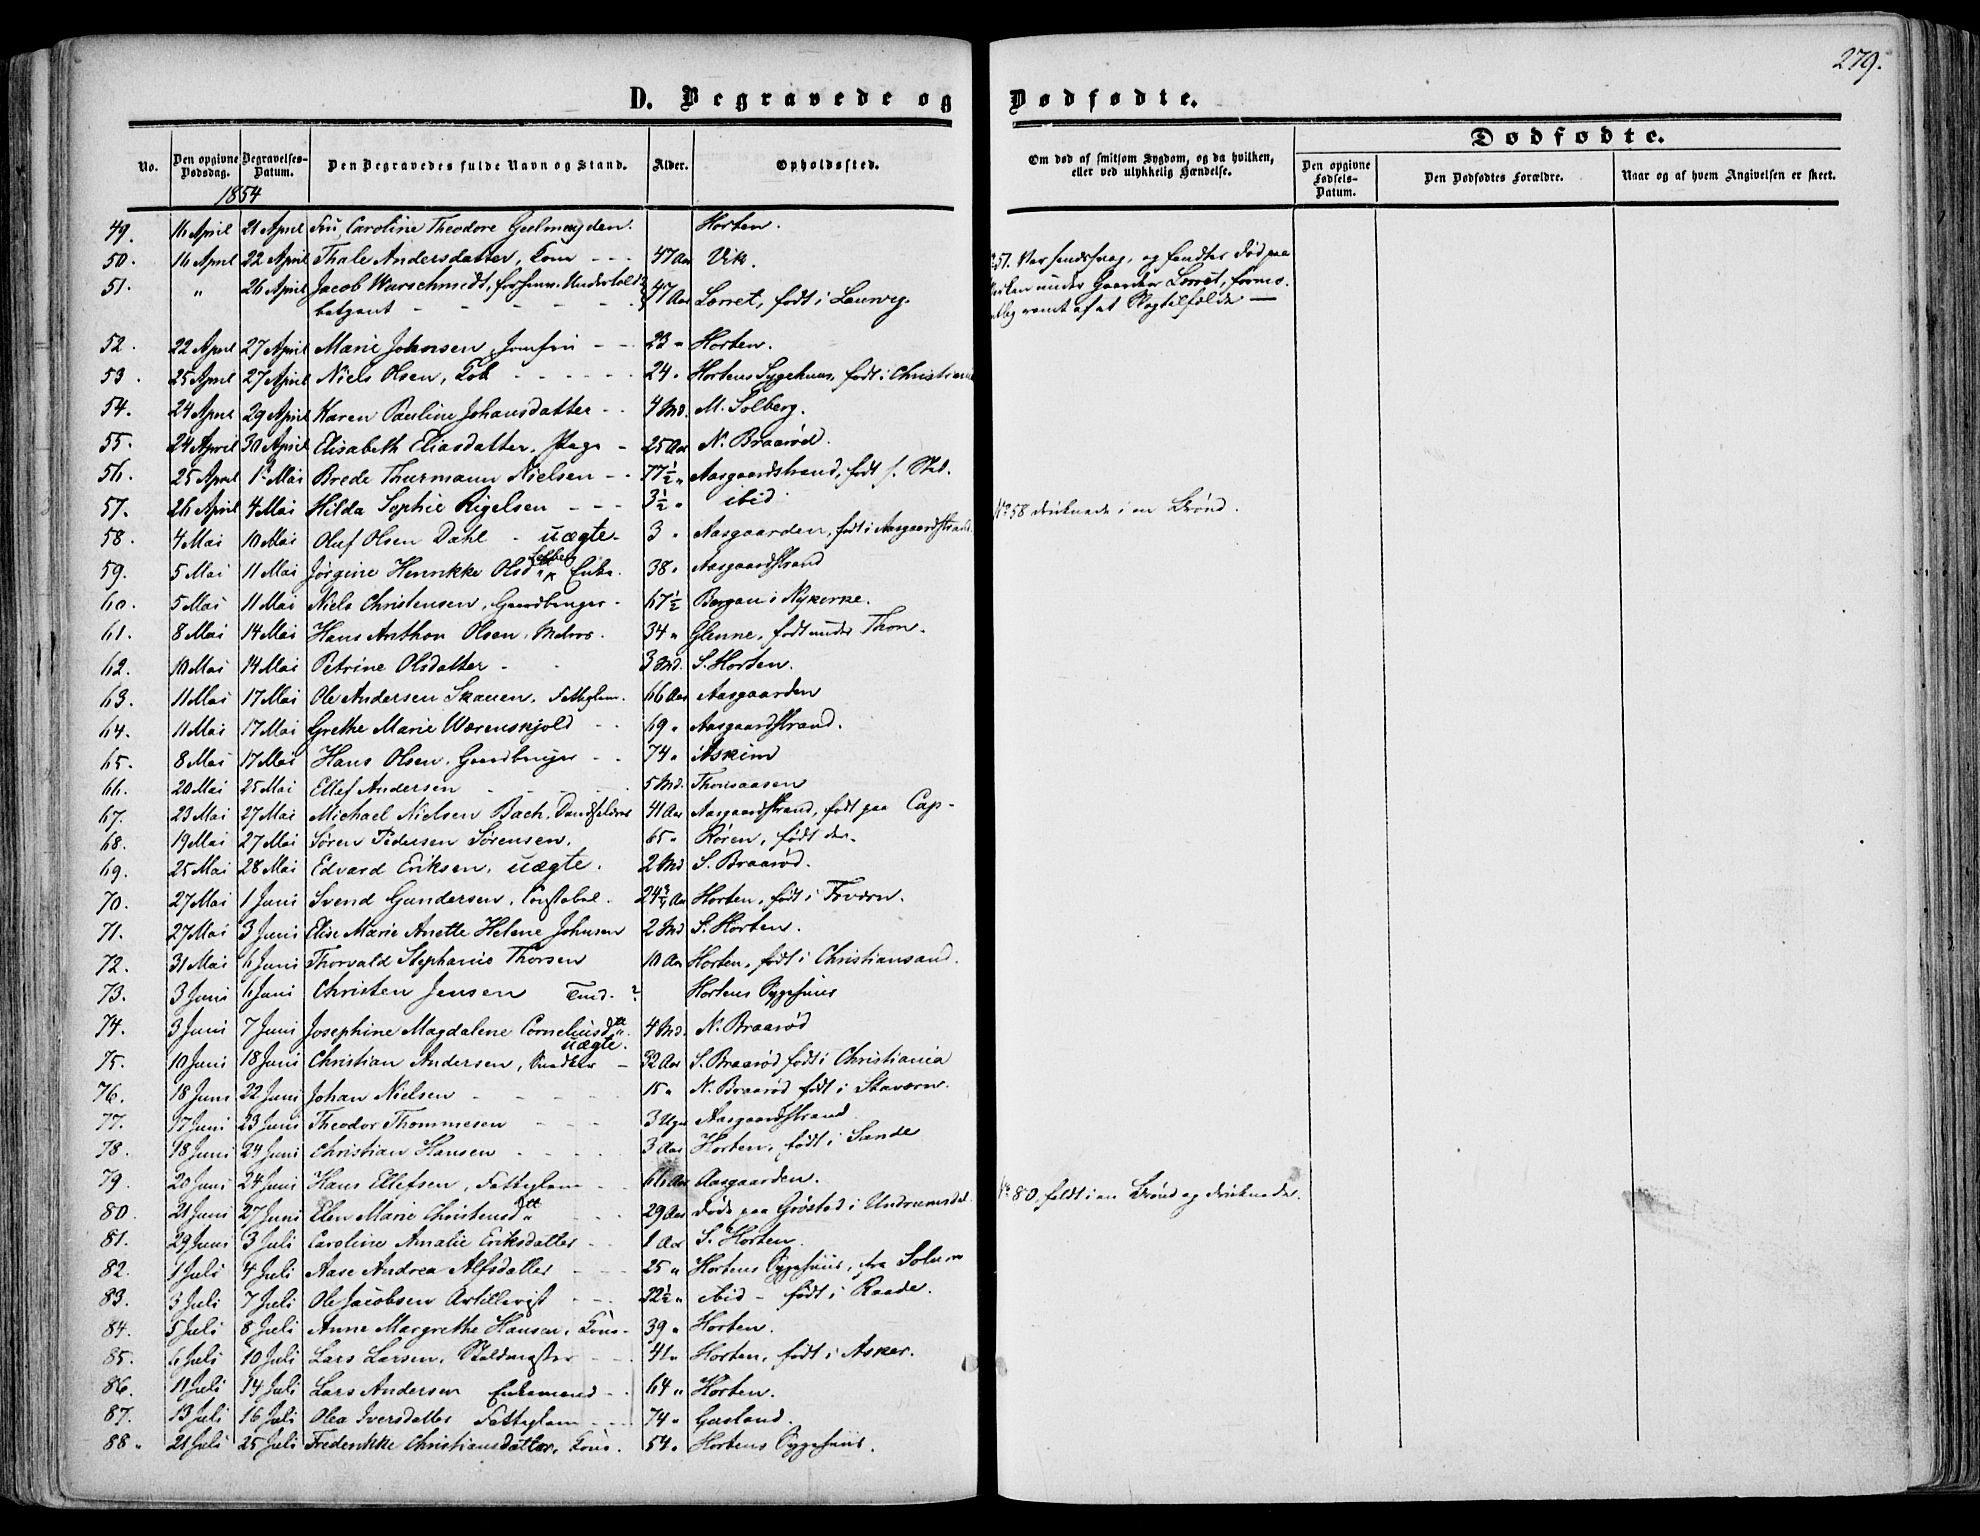 279.
D. Begravede og Dødfødte.
No. Den opgivne Dødsdag. Begravelses-Datum. Den Begravedes fulde Navn og Stand. Alder. Opholdssted.
Om død af smitsom Sygdom, og da hvilken, eller ved ulykkelig Hændelse.
Dødfødte.
Den opgivne Fødsels-Datum. Den Dødfødtes Forældre. Naar og af hvem Angivelsen er skeet.
1854
49. 11 April 21 April Fru Caroline Theodore Geelmuyden. Horten.
50. 16 April 22 April Thale Andersdatter, Kone - - - 47 Aar Vik.
51. " 26 April Jacob Warschmidt, forhenv. Undertold- 47 Aar Lørret, født i Laurvig
betjent - - - -
52. 22 April 27 April Marie Johnsen, Jomfru - - 23 " Horten.
53. 25 April 27 April Niels Olsen, - - - - - 24 " Hortens Sygehuus, født i Christiania
54. 24 April 29 April Karen Pauline Johansdatter - - 4 Md. M. Solberg.
55. 24 April 30 April Elisabeth Eliasdatter, Pige - 25 Aar N. Braarød.
56. 25 April 1 Mai Brede Thurmann Nielsen - - 77½ " Aasgaardstrand, født s. Sted.
57. 26 April 4 Mai Hilda Sophie Rigelsen - - - 3½ " ibid
58. 4 Mai 10 Mai Oluf Olsen Dahl - uægte. 3 " Aasgaarden, født i Aasgaardstrand.
59. 5 Mai 11 Mai Jørgine Henrikke Olsd. Enke. 38 " Aasgaardstrand
60. 5 Mai 11 Mai Niels Christensen, Gaardbruger - 67½ Bergan i Nykirke.
61. 8 Mai 14 Mai Hans Anthon Olsen, Matros. 34 " Glenne, født under Thon.
62. 10 Mai 14 Mai Petrine Olsdatter - - 3 Md. S. Horten.
63. 11 Mai 17 Mai Ole Andersen Skauen, Fattiglem. 66 Aar Aasgaarden
64. 11 Mai 17 Mai Grethe Marie Wærenskjold - - 69 " Aasgaardstrand.
65. 8 Mai 17 Mai Hans Olsen, Gaardbruger - - 74 " Askim
66. 20 Mai 25 Mai Ellef Andersen - - - 5 Md. Thorsaasen
67. 23 Mai 27 Mai Michael Nielsen Bach, 41 Aar Aasgaardstrand, født paa Cap-
68. 19 Mai 27 Mai Søren Pedersen Sørensen. 65 " Røren, født der.
69. 25 Mai 28 Mai Edvard Eriksen, uægte. 2 Md S. Braarød.
70. 27 Mai 1 Juni Svend Gundersen, Constabel. 24¾ Aar Horten, født i
71. 27 Mai 3 Juni Elise Marie Anette Helene Johnsen 2 Md S. Horten.
72. 31 Mai 6 Juni Thorvald Stephanus Thorsen 10 Aar Horten, født i Christiansand.
73. 3 Juni 6 Juni Christen Jensen ? Hortens Sygehuus
74. 3 Juni 7 Juni Josephine Magdalene Corneliusdtt. 4 Md. N. Braarød
uægte.
75. 10 Juni 18 Juni Christian Andersen, Snedker - 32 Aar S. Braarød født i Christiania
76. 18 Juni 22 Juni Johan Nielsen - - - - 15 " N. Braarød født i Stavern.
77. 17 Juni 23 Juni Theodor Thommesen - - - 3 Uger Aasgaardstrand.
78. 18 Juni 24 Juni Christian Hansen - - - - 3 Aar Horten, født i Sande
79. 20 Juni 24 Juni Hans Ellefsen, Fattiglem - - 66 Aar Aasgaarden.
80. 21 Juni 27 Juni Elen Marie Christensdtt. - - - 29 Aar døde paa Grøstad i Undrumsdal.
81. 29 Juni 3 Juli Caroline Amalie Eriksdatter - - 1 Aar S. Horten.
82. 1 Juli 4 Juli Aase Andrea Alfsdatter - - - 25 " Hortens Sygehuus, fra Solum
83. 3 Juli 7 Juli Ole Jacobsen Artillerist - - - 22½ " ibid - født i Raade.
84. 5 Juli 8 Juli Anne Margrethe Hansen, Kone - 39 " Horten.
85. 6 Juli 10 Juli Lars Larsen, Staldmester - - 41 " Horten, født i Asker.
86. 11 Juli 14 Juli Lars Andersen Enkemand - - 64 " Horten.
87. 13 Juli 16 Juli Olea Iversdatter Fattiglem - - 74 "
88 " 21 Juli 25 Juli Frederikke Christiansdatter, Kone. 54 " Hortens Sygehuus.
51. Var sindssvag, og fandtes død paa
under Gaarden Lørret, formo-
entlig ramt af et Slagtilfælde —
No 58 druknede i en Brønd.
No 80, faldt i en Brønd og druknede.